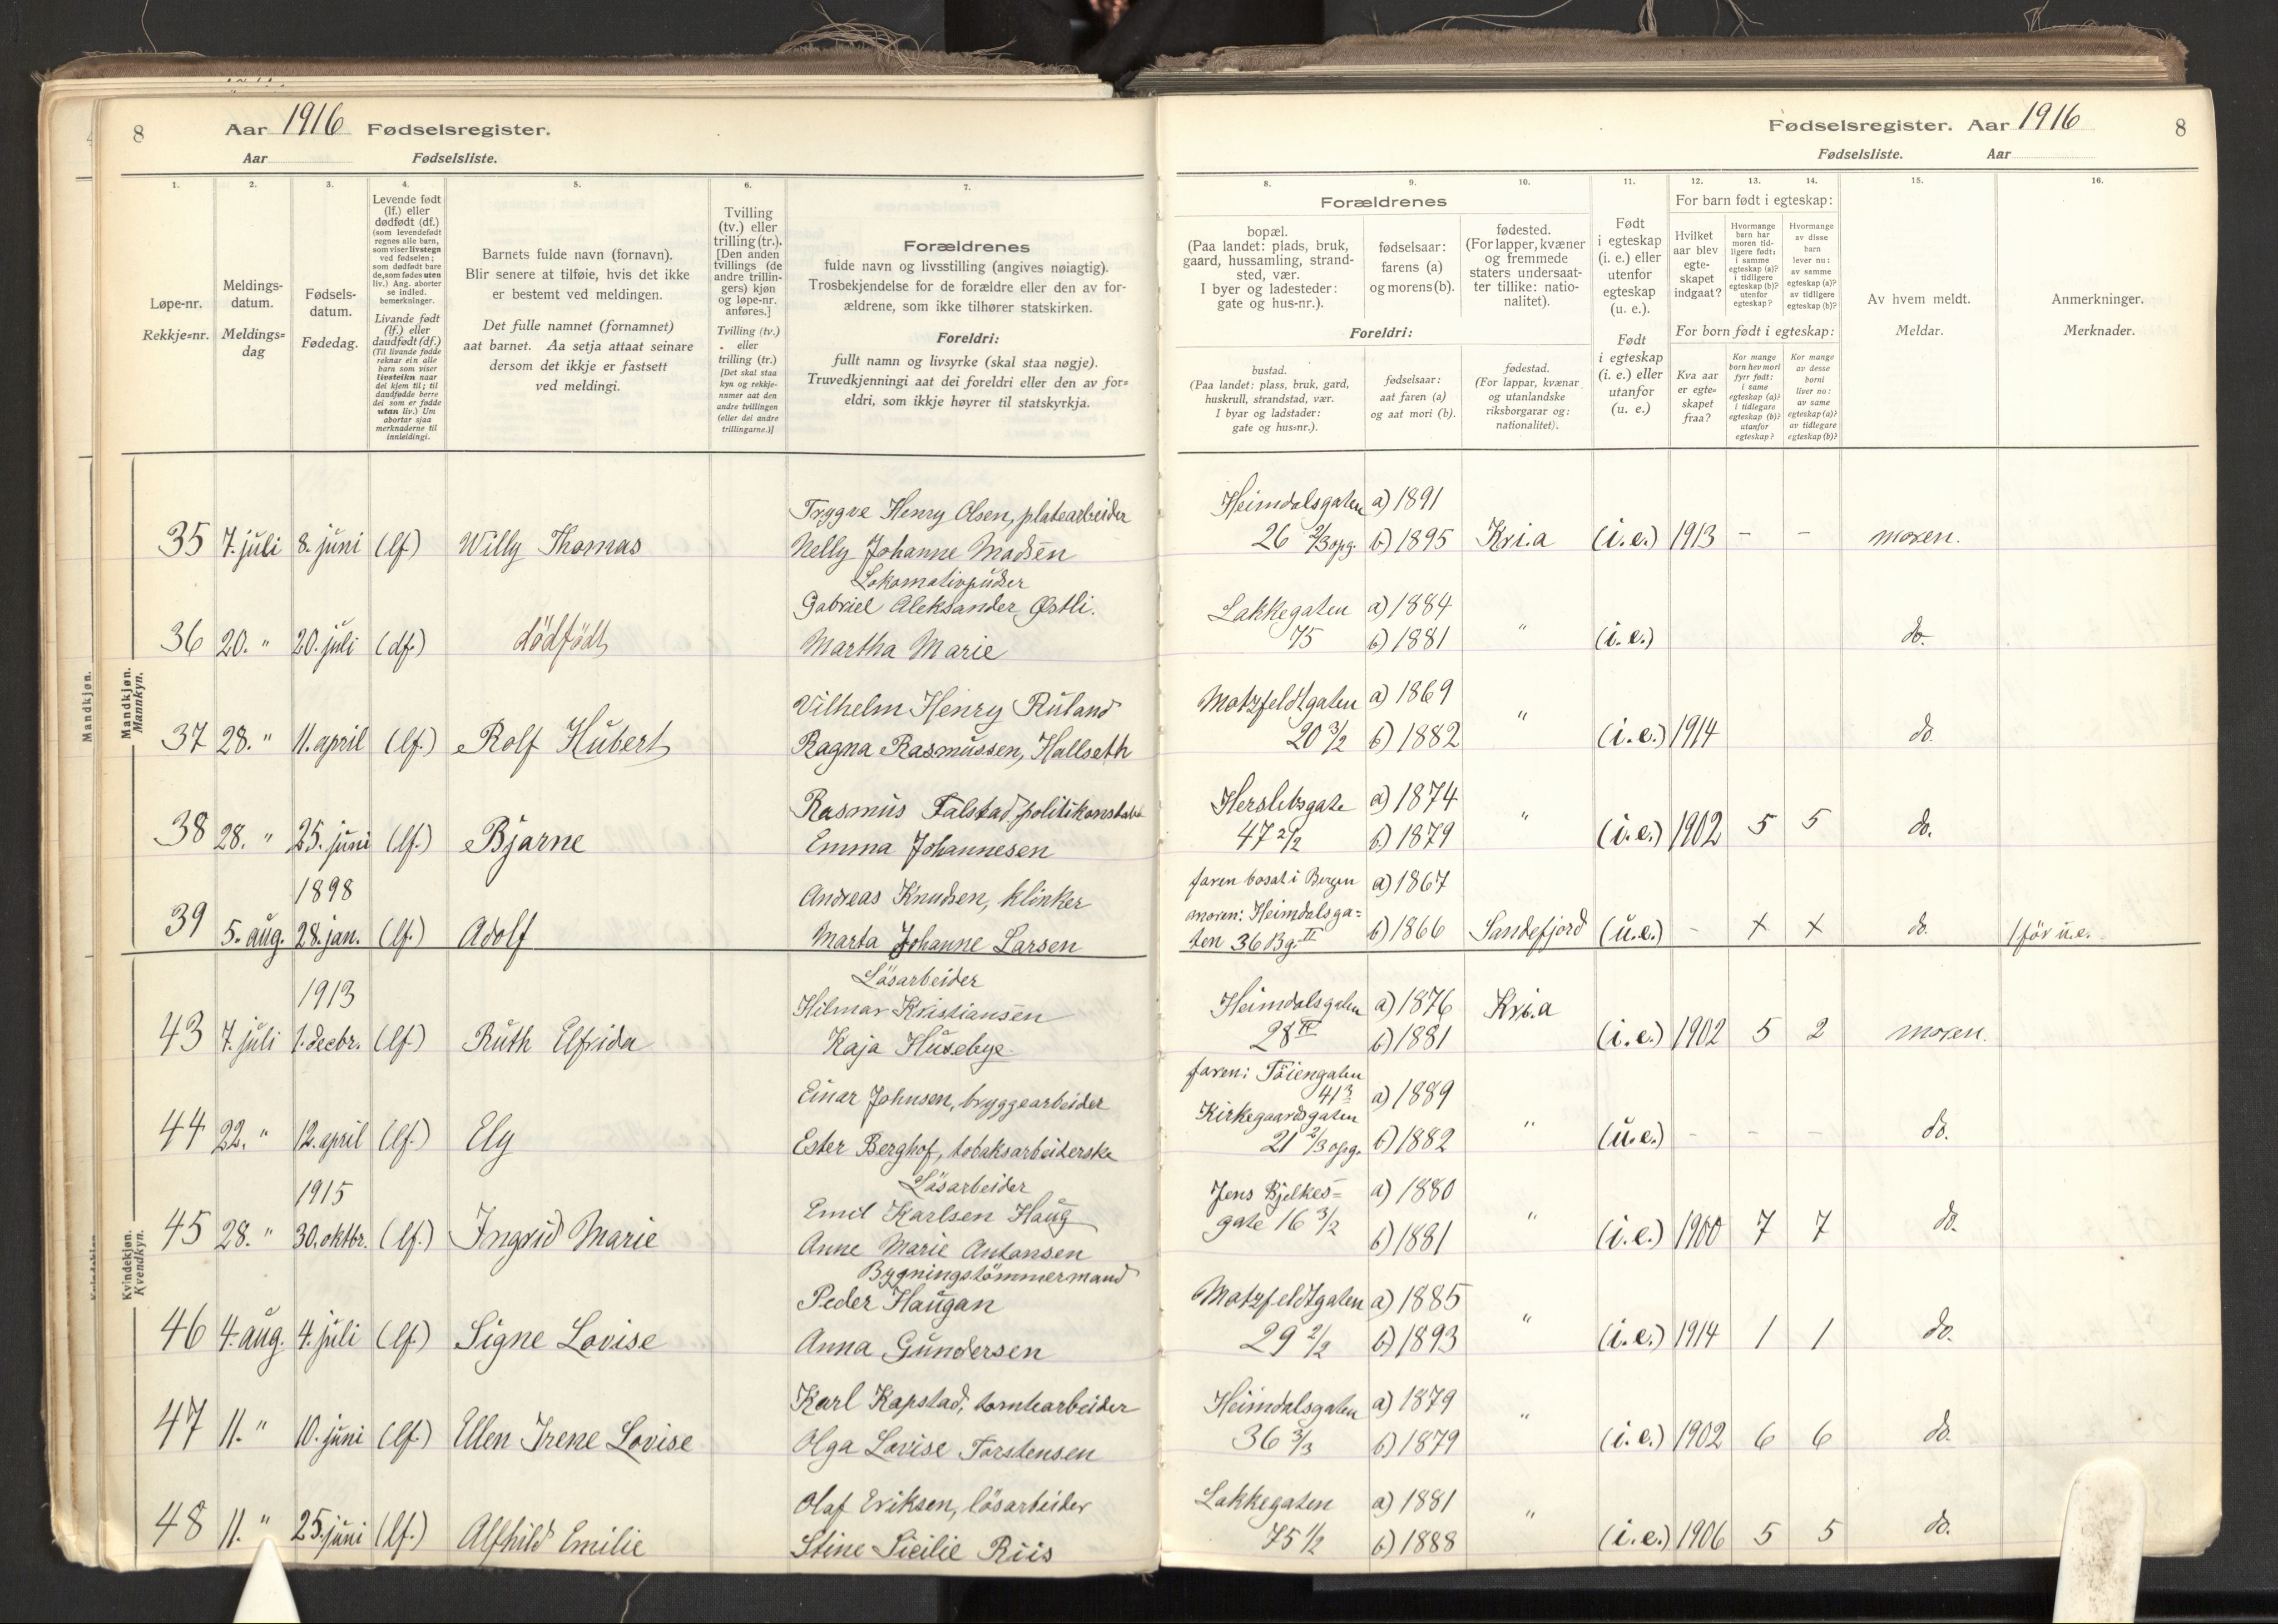 8 Aar 1916 Fødselsregister.
Aar Fødselsliste.
Fødselsregister. Aar 1916 8
Fødselsliste. Aar
1. 2. 3. 4. 5. 6. 7.
Løpe-nr.
Rekkje=nr.
Meldings-
datum.
Meldings=
dag
Fødsels-
datum.
Fødedag.
Levende født
(lf.) eller
dødfødt (df.)
(som levendefødt
regnes alle barn,
som viser livstegn
ved fødselen;
som dødfødt bare
de, som fødes uten
liv.) Ang. aborter
se indled.
bemerkninger.
Livande født
(lf.) eller
daudfødt (df.)
(Til livande fødde
reknar ein alle
barn som viser
livsteikn naar
dei kjem til; til
daudfødde berre
dei som er fødde
utan liv.) Um
abortar sjaa
merknaderne til
innleidingi.
Barnets fulde navn (fornavn).
Blir senere at tilføie, hvis det ikke
er bestemt ved meldingen.
Det fulle namnet (fornamnet)
aat barnet. Aa setja attaat seinare
dersom det ikkje er fastsett
ved meldingi.
Tvilling
(tv.) eller
trilling (tr.).
[Den anden
tvillings (de
andre trillin-
gers) kjøn
og løpe-nr.
anføres.]
Tvilling (tv.)
eller
trilling (tr.)
[Det skal staa
kyn og rekkje-
numer aat den
andre tvillingen
(eller dei andre
trillingarne.)]
Forældrenes
fulde navn og livsstilling (angives nøiagtig).
Trosbekjendelse for de forældre eller den av for-
ældrene, som ikke tilhører statskirken.
Foreldri:
fullt namn og livsyrke (skal staa nøgje).
Truvedkjenningi aat dei foreldri eller den av for=
eldri, som ikkje høyrer til statskyrkja.
8. 9. 10. 11. 12. 13. 14. 15. 16.
Forældrenes
bopæl.
(Paa landet: plads, bruk,
gaard, hussamling, strand-
sted, vær.
I byer og ladesteder:
gate og hus-nr.).
fødselsaar:
farens (a)
og morens (b).
fødested.
(For lapper, kvæner
og fremmede
staters undersaat-
ter tillike: natio-
nalitet).
Foreldri:
bustad.
(Paa landet: plass, bruk, gard,
huskrull, strandstad, vær.
I byar og ladstader:
gate og hus=nr.).
fødselsaar:
aat faren (a)
og aat mori (b).
fødestad.
(For lappar, kvænar
og utanlandske
riksborgarar og:
nationalitet).
Født
i egteskap
(i. e.) eller
utenfor
egteskap
(u. e.).
Født
i egteskap
(i. e.) eller
utanfor
(u. e.)
For barn født i egteskap:
Hvilket
aar blev
egte-
skapet
indgaat?
Hvormange
barn har
moren tid-
ligere født:
i samme
egteskap (a)?
i tidligere
egteskap (b)?
utenfor
egteskap?
Hvormange
av disse
barn
lever nu:
av samme
egteskap (a)?
av tidligere
egteskap (b)?
For born født i egteskap:
Kva aar
er egte=
skapet
fraa?
Kor mange
born hev mori
fyrr født:
i same
egteskap (a)?
i tidlegare
egteskap (b)?
utanfor
egteskap?
Kor mange
av desse
borni
liver no:
av same
egteskap (a)?
av tidlegare
egteskap (b)?
Av hvem meldt.
Meldar.
Anmerkninger.
Merknader.
Mandkjøn.
Mandkjøn.
Mannkyn.
Trygve Henry Olsen, platearbeider Heimdalsgaten a) 1891
35 7. juli 8. juni (lf.) Willy Thomas Nelly Johanne Madsen 26 2/3 opg. b) 1895 Kri.a (i.e.) 1913 – – moren.
Lokomotivpudser
Gabriel Aleksander Østli. Lakkegaten a) 1884
36 20. " 20. juli (df.) dödfödt Martha Marie 75 b) 1881 " (i.e.) do.
Vilhelm Henry Ruland Motzfeldtgaten a) 1869
37 28. " 11. april (lf.) Rolf Hubert Ragna Rasmussen, Hallseth 20 3/2 b) 1882 " (i.e.) 1914 do.
Rasmus Falstad, politikonstabel Herslebsgate a) 1874
38 28. " 25. juni (lf.) Bjarne Emma Johannesen 47 2/2 b) 1879 " (i.e.) 1902 5 5 do.
1898 Andreas Knudsen, klinker faren bosat i Bergen a) 1867
39 5. aug. 28. jan. (lf.) Adolf Marta Johanne Larsen moren: Heimdalsga=
ten 36 Bg. II b) 1866 Sandefjord (u.e.) – + + do. 1 för u.e.
Kvindekjøn.
Kvendkyn.
Lösarbeider
1913 Hilmar Kristiansen Heimdalsgaten a) 1876 Kri.a
43 7. juli 1. decbr. (lf.) Ruth Elfrida Kaja Husebye 28 IV b) 1881 (i.e.) 1902 5 2 moren.
Einar Johnsen, bryggearbeider faren: Töiengaten
41 3 a) 1889
44 22. " 12. april (lf.) Ely Ester Berghof, tobaksarbeiderske Kirkegaardsgaten
21 2/3 opg. b) 1882 " (u.e.) – – – do.
Lösarbeider
1915 Emil Karlsen Haug Jens Bjelkes= a) 1880
45 28. " 30. oktbr. (lf.) Ingrid Marie Anne Marie Antonsen gate 16 3/2 b) 1881 " (i.e.) 1900 7 7 do.
Bygningstömmermand
Peder Haugan Motzfeldtgaten a) 1885
46 4. aug. 4. juli (lf.) Signe Lovise Anna Gundersen 29 2/2 b) 1893 " (i.e.) 1914 1 1 do.
Karl Kapstad, tomtearbeider Heimdalsgaten a) 1879
47 11. " 10. juni (lf.) Ellen Irene Lovise Olga Lovise Torstensen 36 3/3 b) 1879 " (i.e.) 1902 6 6 do.
Olaf Eriksen, lösarbeider Lakkegaten a) 1881
48 11. " 25. juni (lf.) Alfhild Emilie Stine Sicilie Riis 75 1/2 b) 1888 " (i.e.) 1906 5 5 do.